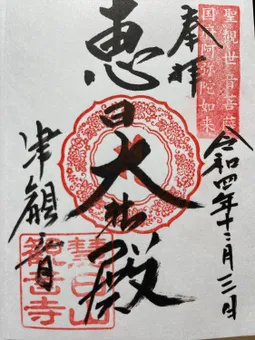 聖観世音菩薩
国府阿弥陀如来
奉拝
令和四年十二月三日
恵日大悲殿
津観音
慧日山
観音寺